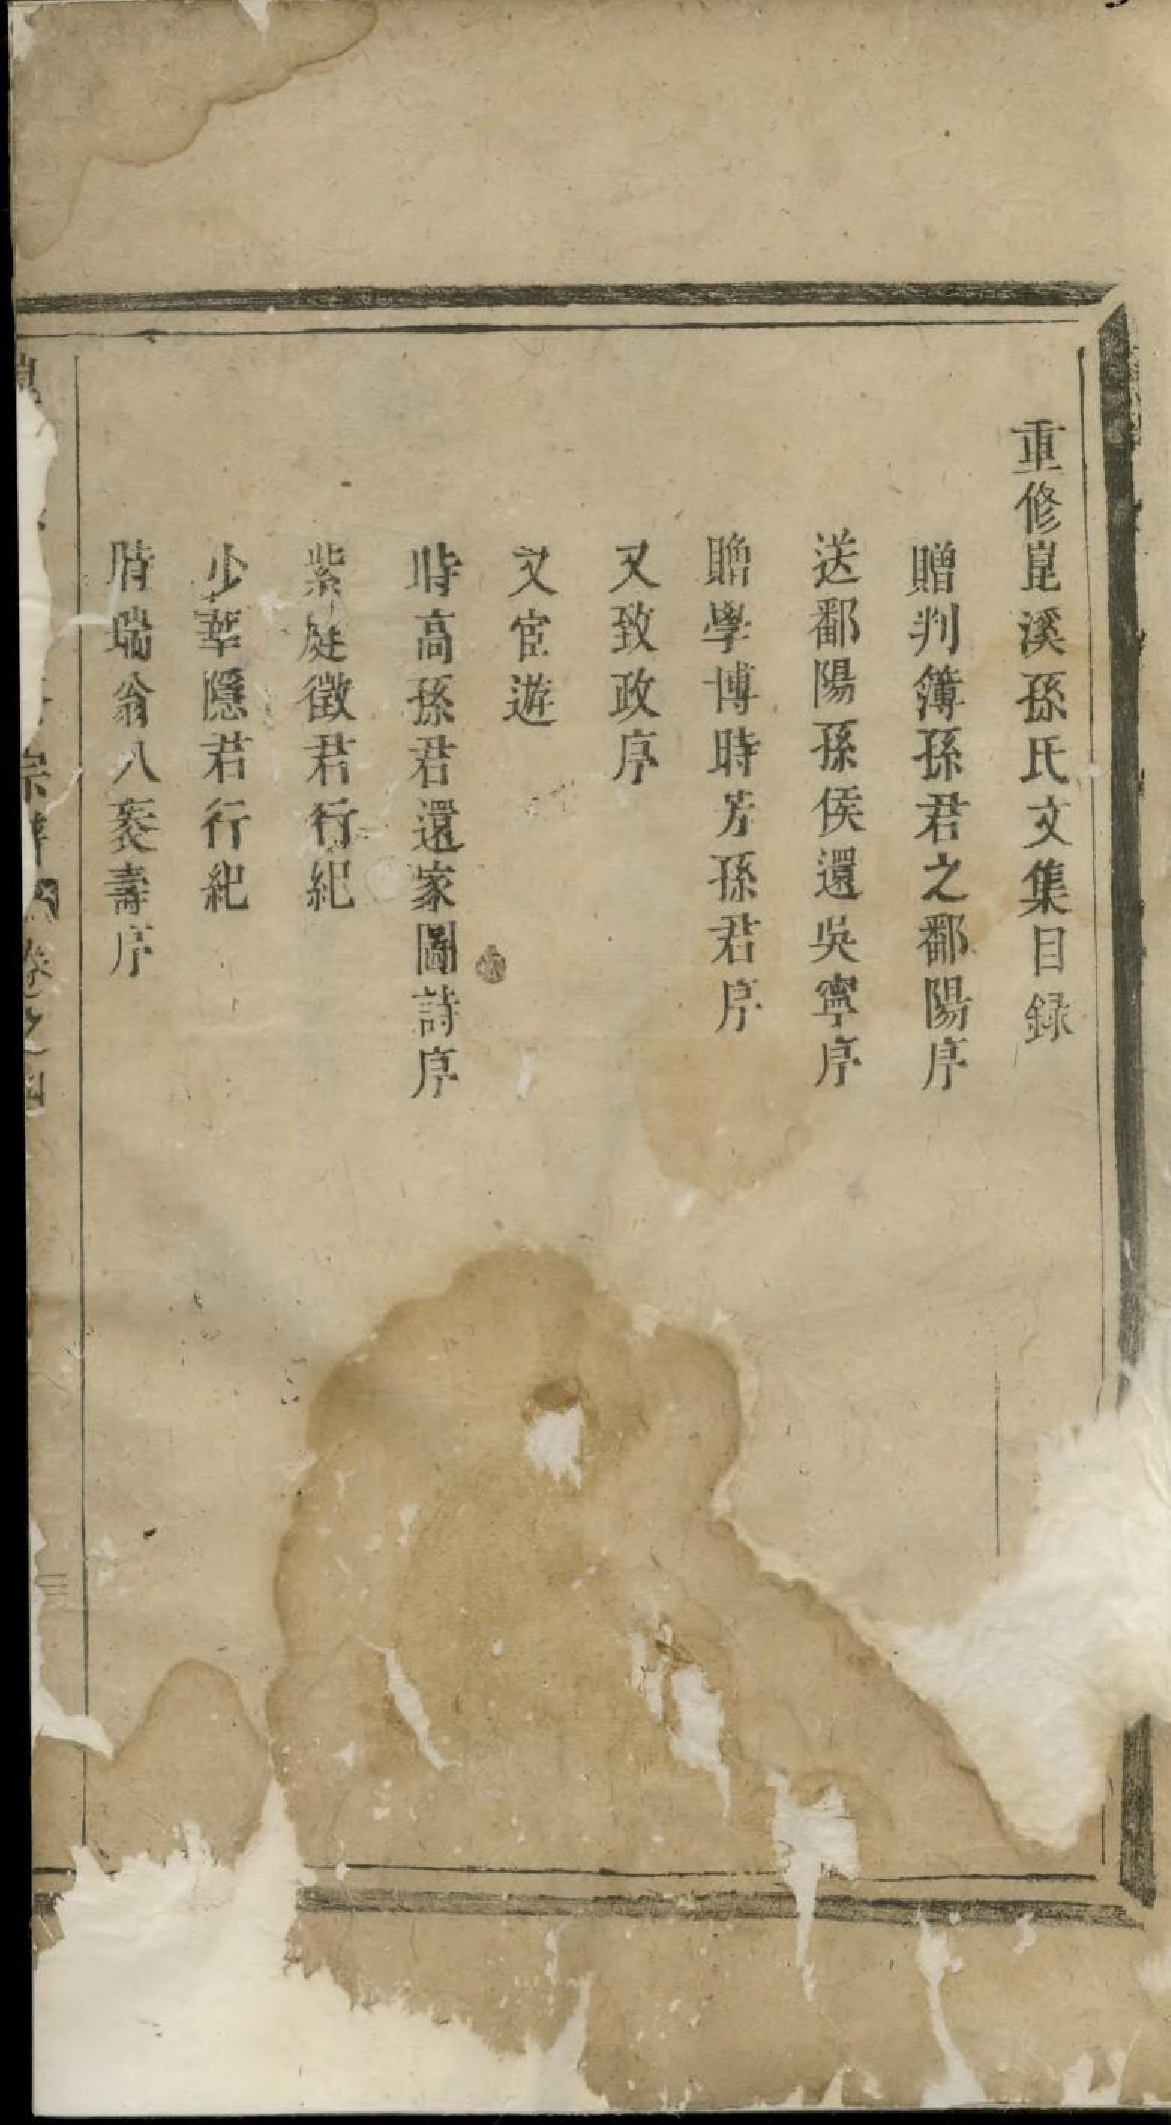 重修崑溪孫氏文集目録
贈判簿孫君之鄱陽序
送鄱陽孫侯還吳寧序
贈學博時芳孫君序
又致政序
又宦遊
時高孫君還家圖詩序
紫庭徵君行紀
少莘隱君行紀
時瑞翁八袠壽序
宗譜 卷之四